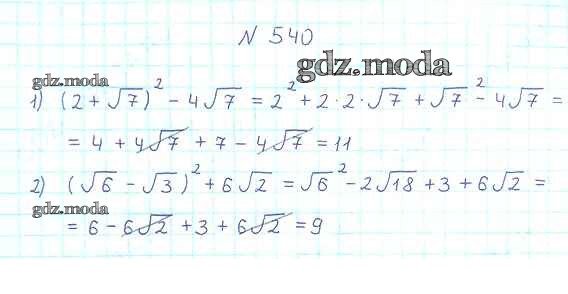 N 540
gdz.moda
gdz.moda
1) (2 + √7)² - 4√7 = 2² + 2·2·√7 + √7² - 4√7 =
= 4 + 4√7 + 7 - 4√7 = 11
2) (√6 - √3)² + 6√2 = √6² - 2√18 + 3 + 6√2 =
gdz.moda
= 6 - 6√2 + 3 + 6√2 = 9